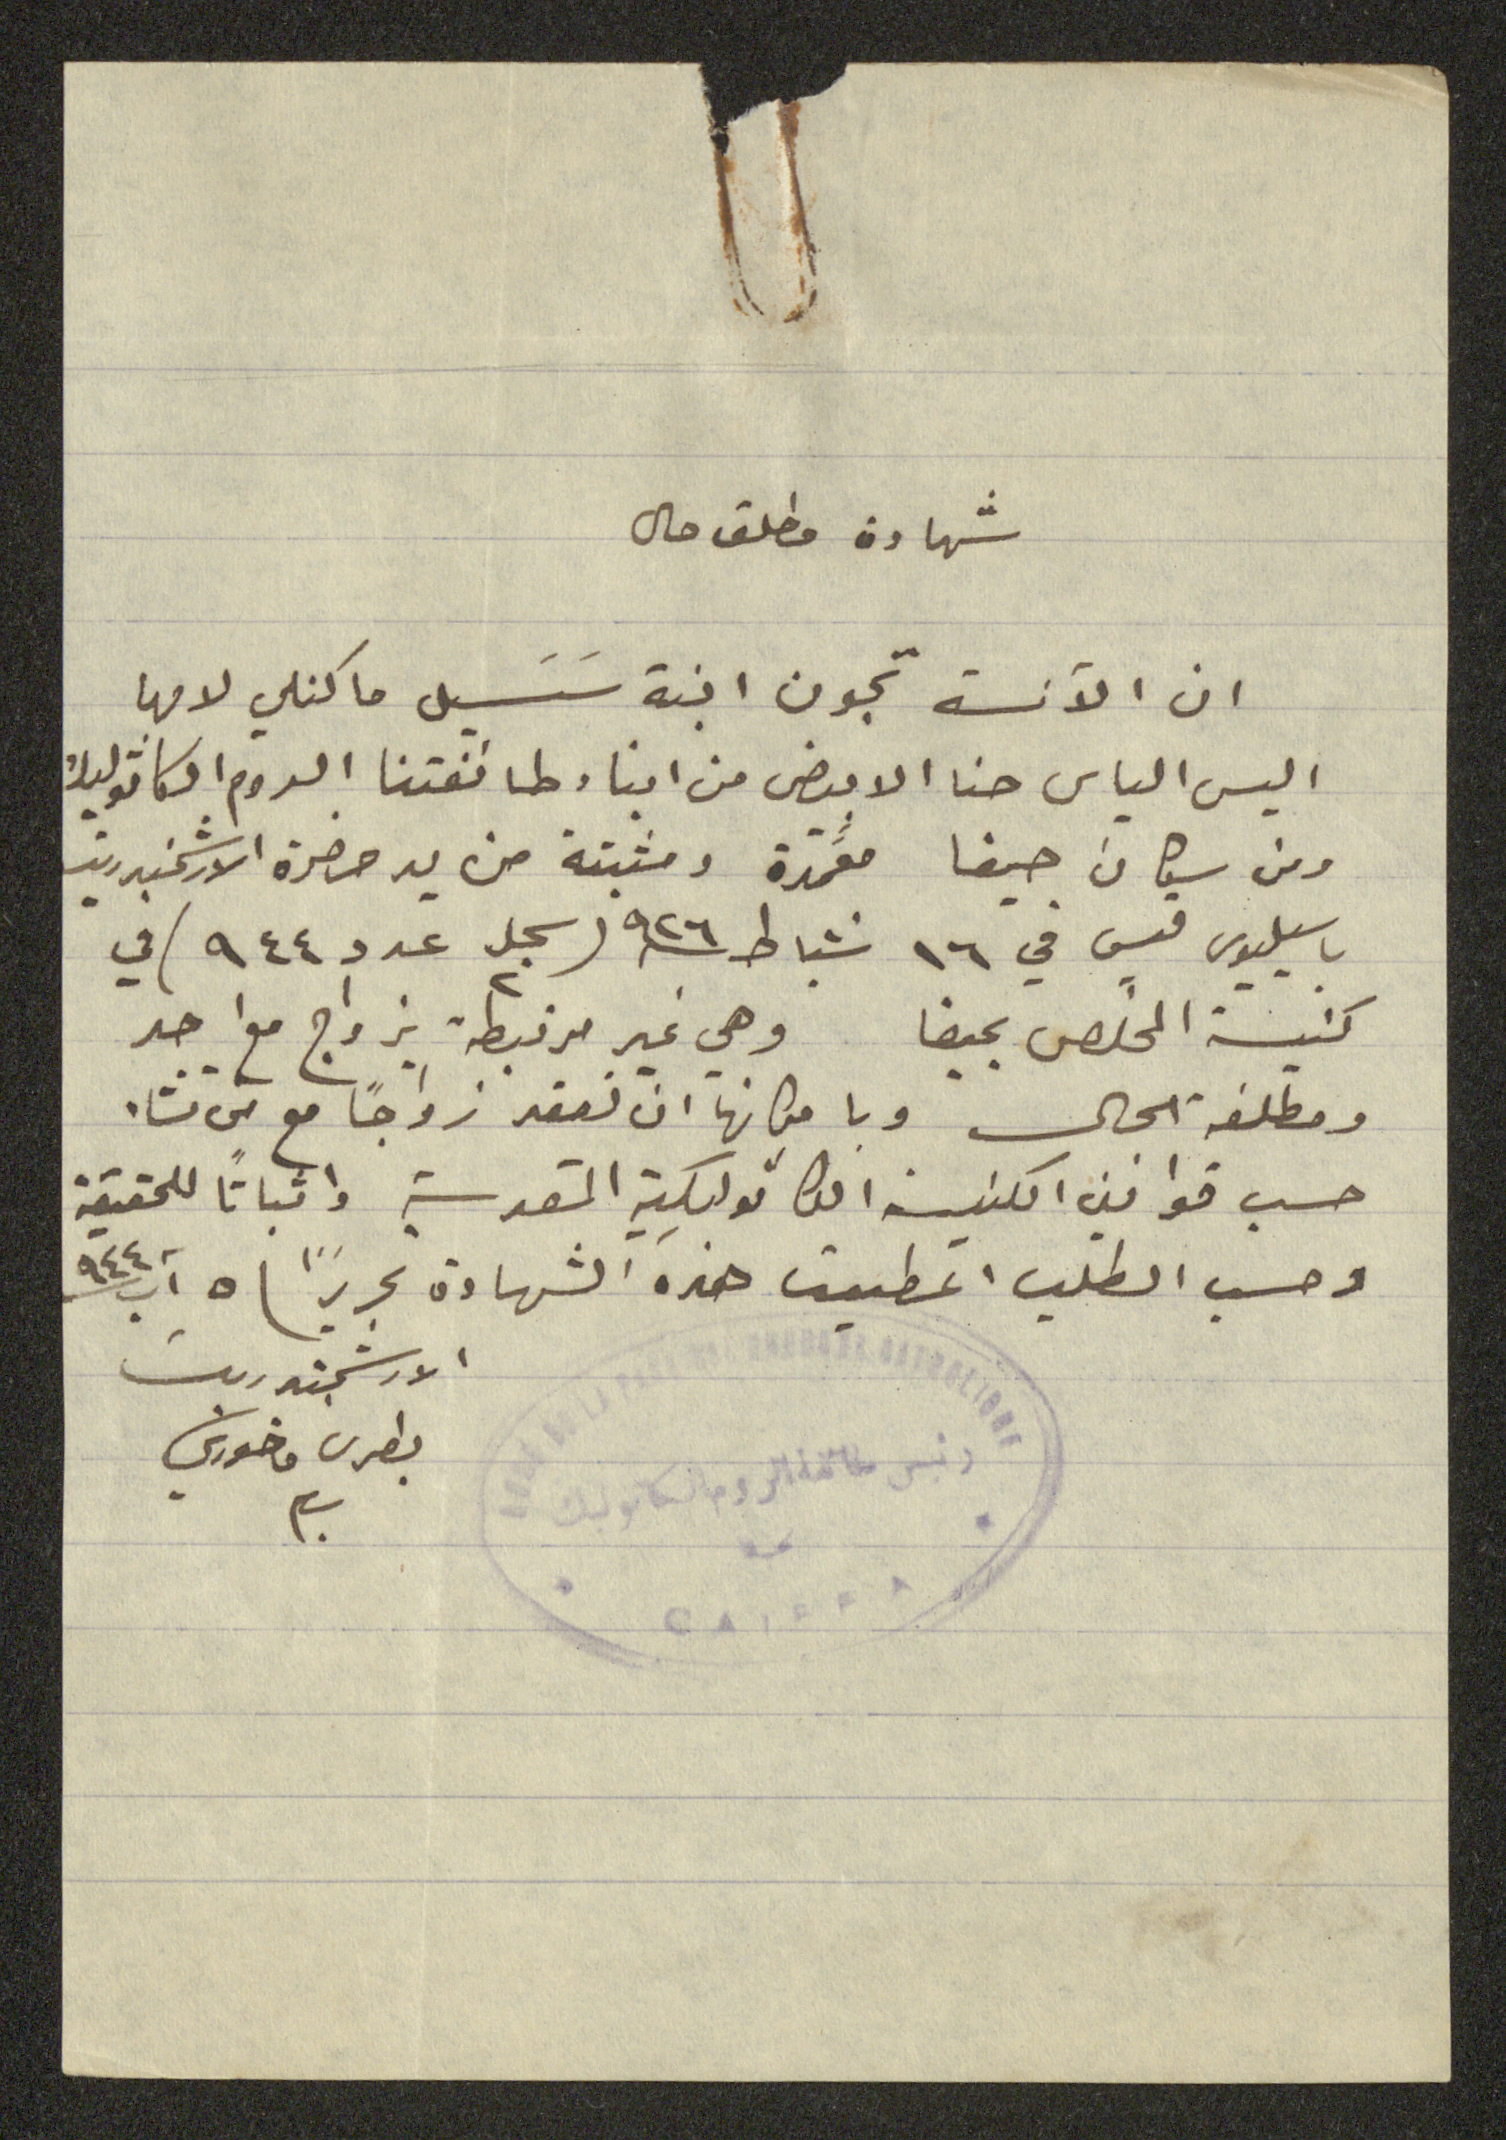 شهادة مطلق حال
ان الآنسة جون ابنة سَسَيل ماكنلي لامها
اليس الياس حنا الابيض من ابناء طائفتنا الروم الكاثوليك
ومن سكان حيفا معمَّدة ومثبتة من يد حضرة الارشمندريت
باسيليوس قيس في ١٦ شباط ٩٢٦ (سجل ٢ عدد ٩٤٤) في
كنيسة المخلص بحيفا وهي غير مرتبطة بزواج مع احد
ومطلقة الحال وبامكانها ان تعقد زواجًا مع من تشاء
حسب قوانين الكنيسة الكاثوليكية المقدسة واثباتًا للحقيقة
وحسب الطلب اعطيت هذه الشهادة تحريرًا ٥ آب ٩٤٤
الارشمندريت
بطرس فاخوري
ب م
رئيس طائفة الروم الكاثوليك
CAIFFA